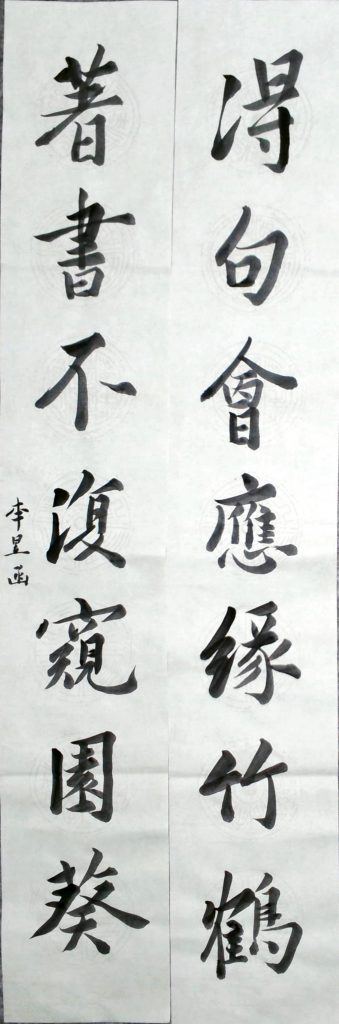 得句會應緣竹鶴
著書不復窺園葵
李昱函